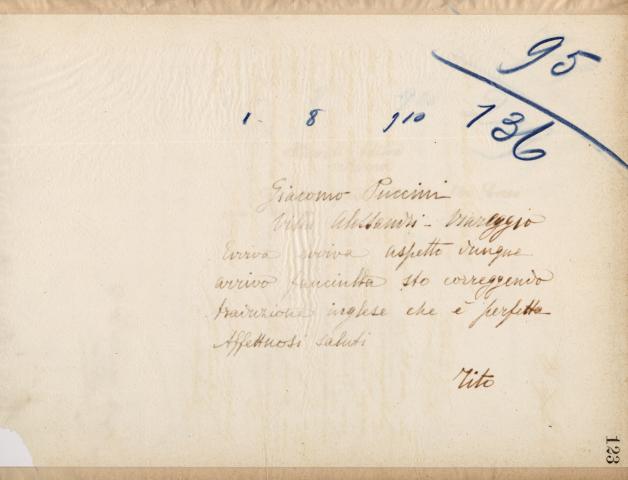 95
136
1 - 8 910
Giacomo Puccini
Villa Alessandri - Viareggio
Evviva evviva aspetto dunque
arrivo fanciulla sto correggendo
traduzione inglese che è perfetta
Affettuosi saluti
Tito
123